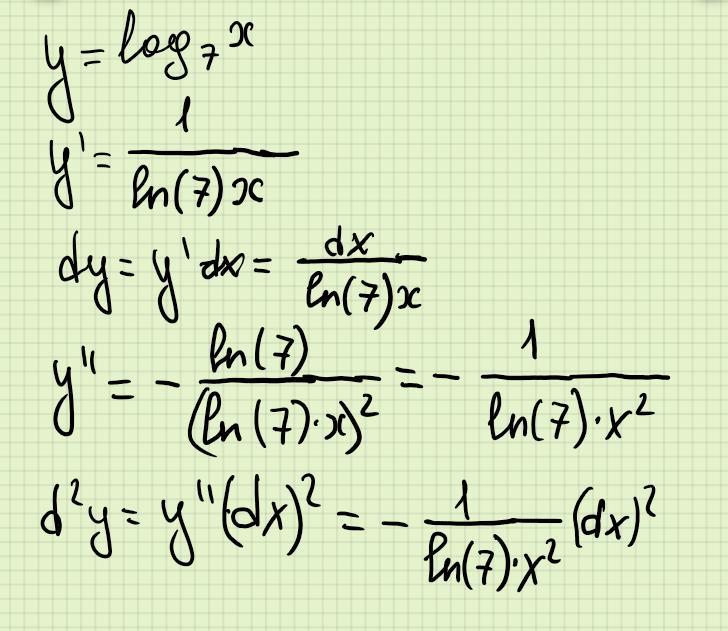 y = log₇ x
y' = 1/(ln(7)x)
dy = y'dx = dx/(ln(7)x)
y'' = - ln(7)/(ln(7)·x)² = - 1/(ln(7)·x²)
d²y = y''(dx)² = - 1/(ln(7)·x²) (dx)²